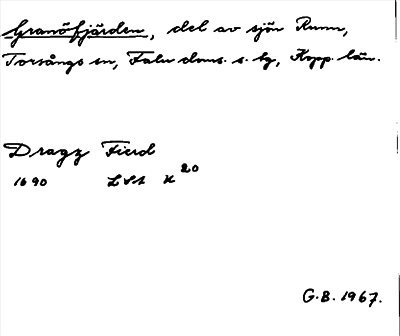 Granöfjärden, del av sjön Runn,
Torsångs sn, Falu doms. s. lg, Kopp. län.
Dragz Fierd
1690 LSA U 20
G.B. 1967.